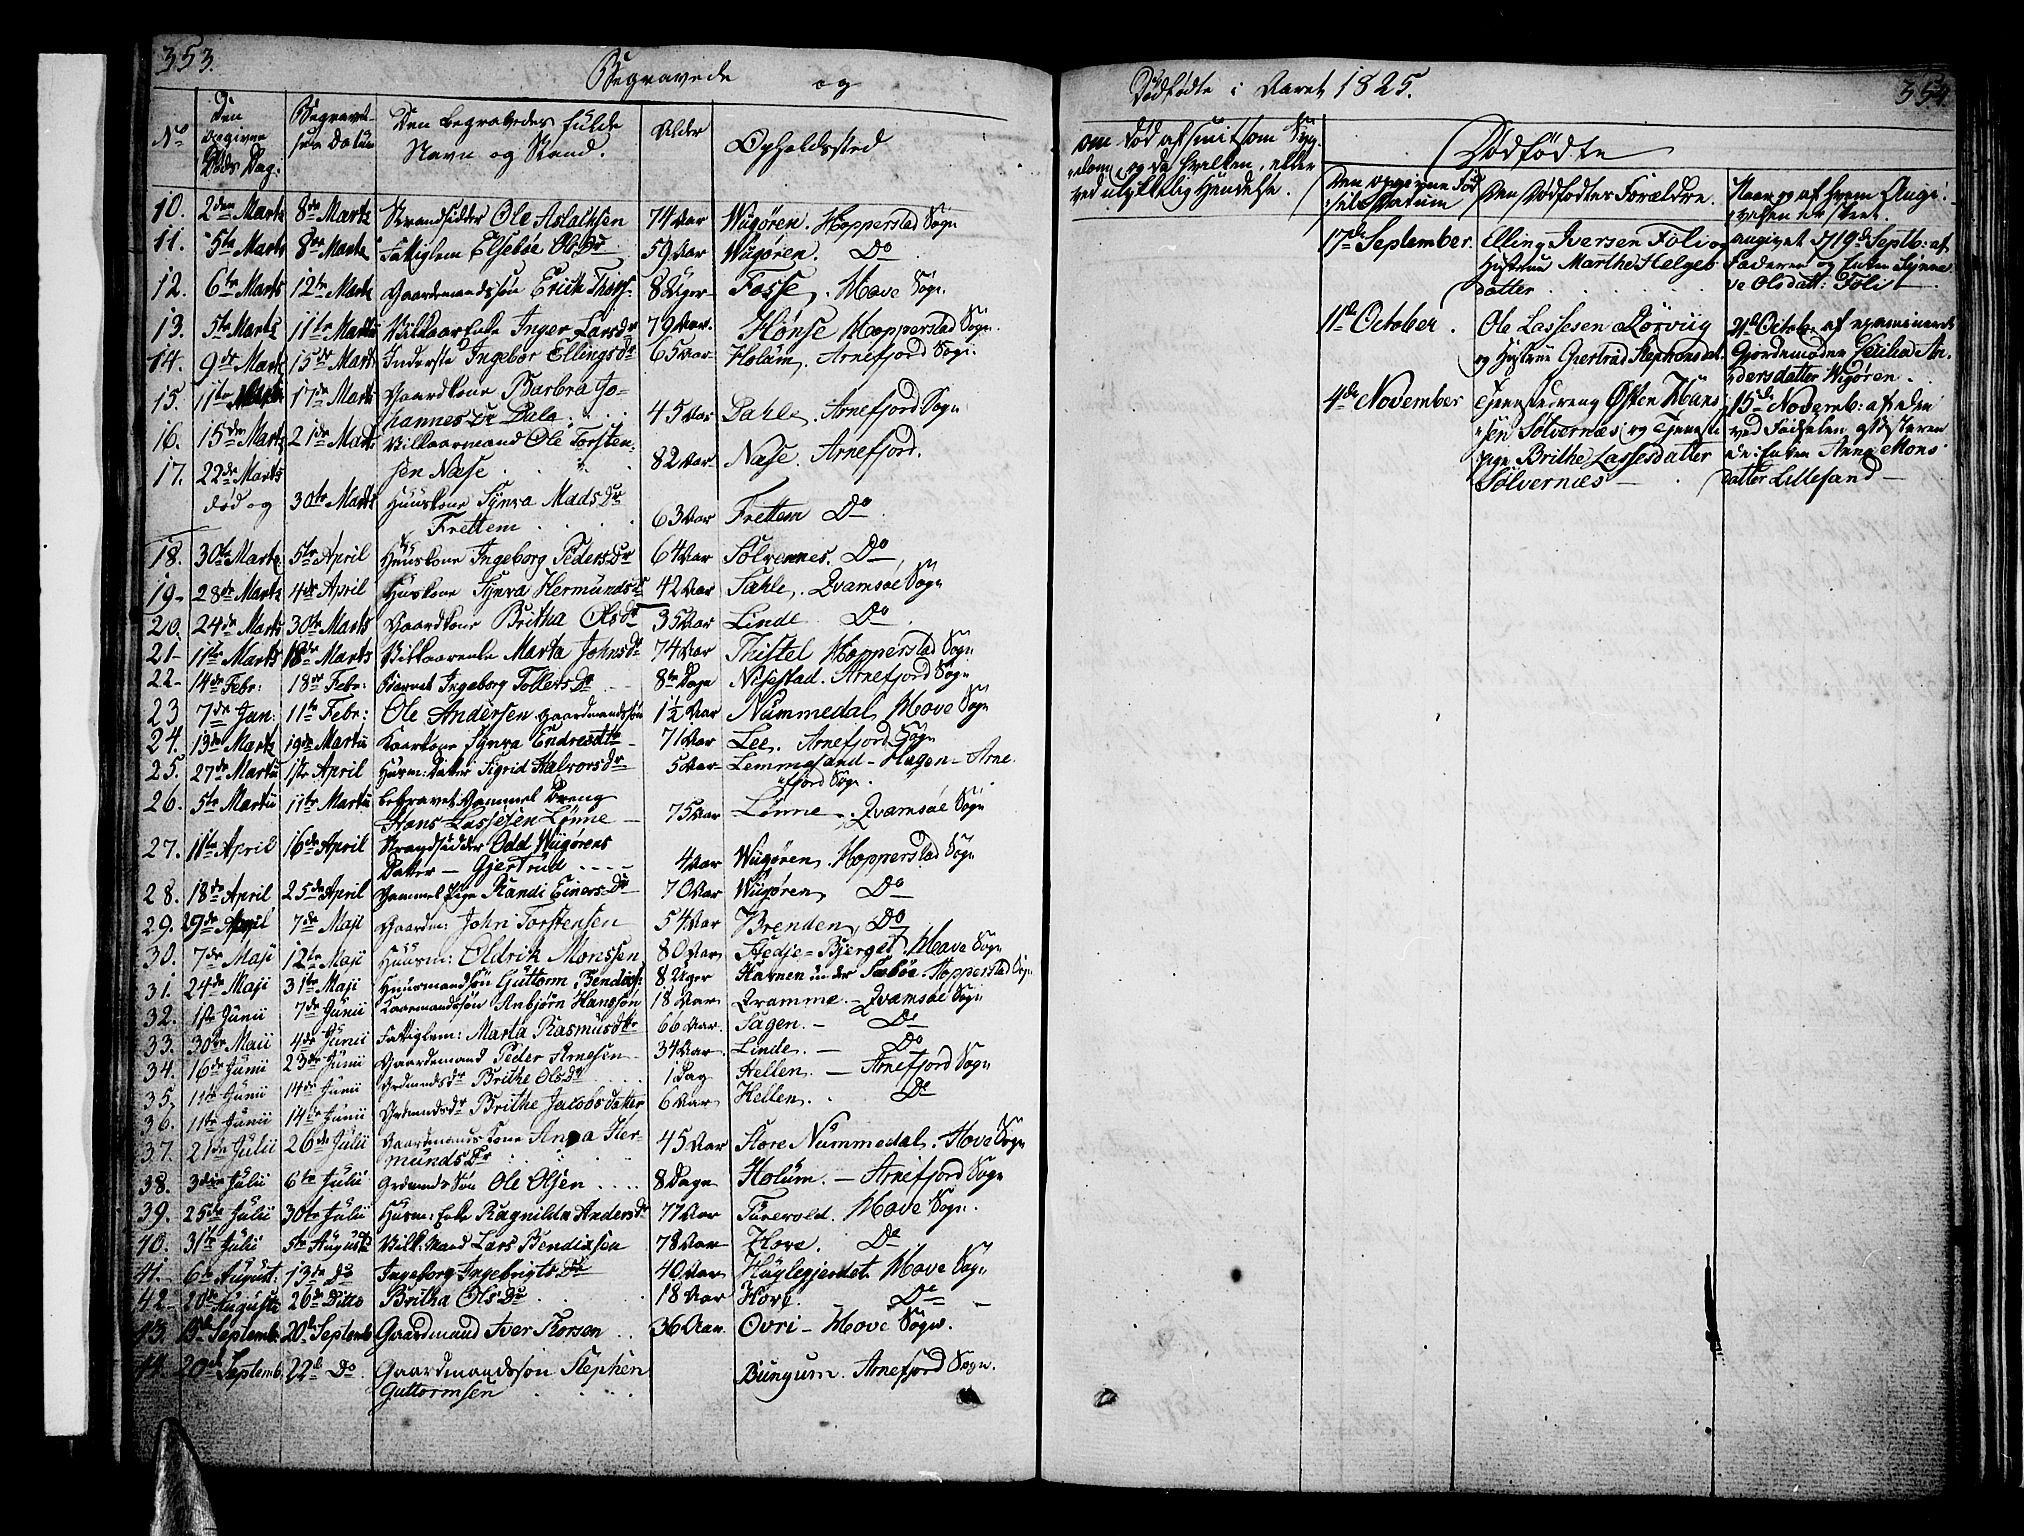 353.
Begravede og
No
Den angivne Døds Dag.
Begravelsens Datum
Den Begravedes fulde Navn og Stand.
Alder
Opholdssted
10. 2den Marts 8de Marts Strandsidder Ole Aslacksen 74 Aar Wügören. Hopperstad Sogn
11. 5te Marts 8de Marts Fattiglem Elsebüe OlsDr 59 Aar Wügören. Do
12. 6te Marts 12te Marts Gaardmandssön Erick Thors- 8 Uger Fosse. Hove Sogn.
13. 5te Marts 11te Martii Vilkaarenke Inger LarsDr 79 Aar. Hönse Hopperstad Sogn.
14. 9de Marts 15de Marts Inderste Ingebor EllingsDr 65 Aar Holüm. Arnefjord Sogn.
15. 11te Marts 17de Marts Gaardkone Barbra Jo-
hannesDr Dale 45 Aar Dahle. Arnefjord Sogn
16. 15de Marts 21de Marts Vilkaarmand Ole Torsten-
sen Næse 82 Aar Næse. Arnefjord.
17. 22de Marts
død og 30te Marts Huuskone Synva MadsDr
Frettem 63 Aar Frettem Do
18. 30te Marts 5te April Huuskone Ingeborg PedersDr 64 Aar Solvernes. Do
19- 28de Marts 4de April Huskone Synva HermündsDr 42 Aar Sahle. Qvamsöe Sogn
20. 24de Marts 30te Marts Gaardkone Britha OlsDr 35 Aar Linde Do
21- 11te Marts 18de Marts Vilkaarenke Marta JohnsDr 74 Aar Thistel Hopperstad Sogn
22- 14de Febr: 18de Febr: Barnet Ingeborg TollersDr 8te Dage Nisestad. Arnefjord Sogn
23 7de Jan: 11te Febr: Ole Andersen Gaardmandssön 1½ Aar Nümmedal Hove Sogn
24. 13de Marts 19de Martii Kaarkone Synva Endresdtr 71 Aar Lee. Arnefjord Sogn
25. 27de Martii 1ste April Husm: Datter Sigrid HalvorsDr 5 Aar Lemmesand - Hagen - Arne-
fjord Sogn.
26. 5te Martii 11te Martii begravet Gammel Dreng
Hans Lassesen Lönne 75 Aar Lönne - Qvamsöe Sogn
27. 11te April 16de April Strandsidder Odd Wügörens
Datter - Gjertrüd 4 Aar Wügören. Hopperstad Sogn
28. 18de April 25de April Gammel Pige Randi EinersDr 70 Aar Wügören Do
29. 29de April 7de Maji Gaardm: John Torstensen 54 Aar Brenden Do
30. 7de Maji 12te Maji Huusm: Oldrik Monssen 80 Aar Hedje-Bjerget. Hove Sogn
31. 24de Maji 31te Maji Huusmandssön Guttorm Bendixs: 8 Uger Havnen under Sæböe Hopperstad Sogn
32. 1ste Junii 7de Junii Kaarmandssön Anbjörn Hanssön 18 Aar Qvamme. - Qvamsöe Sogn
33. 30te Maii 4de Junii Fattiglem: Marta RasmüsDtr 66 Aar. Sagen. - Do
34. 16de Junii 23de Junii Gaardmand Peder Arnesen 34 Aar Linde. - Do
35. 11te Junii 14de Junii GrdmandsDr Brithe OlsDr 1 Dag Hellen. - Arnefjord Sogn
36. 11te Junii 14de Junii GrdmandsDr Brithe Jacobsdatter 6 Aar Hellen. Do
37. 21de Julii 26de Julii Gaardmands Kone Anna Her-
mündsDr 45 Aar Store Nümmedal. Hove Sogn
38. 3die Julii 6te Julii Grdmands Sön Ole Olsen 8 Dage Holüm. - Arnefjord Sogn
39. 25de Julii 30te Julii Husm: Enke Ragnilda AndersDr 77 Aar Türevold. Hove Sogn.
40. 31te Julii 5te Augusti Vilk. Mand Lars Bendixsen 78 Aar Hove. Do
41. 6te August: 13de Do Ingeborg IngebrigtsDr 40 Aar Höylegjerdet. Hove Sogn
42- 20de Augusti 26de Ditto Britha OlsDr 18 Aar Hove. Do
43. 15de Septemb. 20de Septemb Gaardmand Iver Thorsen 36 Aar. Ovri - Hove Sogn.
44. 20de Septemb. 22de Do. Gaardmandssön Stephen
Guttormsen Bungum. Arnefjord Sogn.
Dödfödte i Aaret 1825.
354.
om død af smitsom Syg-
dom, og da hvilken, eller
ved ulykkelig Hændelse.
Dödfödte
Den opgivne Föd-
sels Datum
Den Dödfödtes Forældre.
Naar og af hvem Angi-
velsen er skeet.
17de September. Elling Iversen Föli og
Hustrue Marthe Helges
datter
angivet d 19de Septb: af
Faderen og Enken Synne-
ve Olsdatt: Föli
11te October. Ole Lassesen Rörviig
og Hustrue Giertrud Stephensdat.
21de Octob. af examinerede
Gjordemoder Cicilia An-
dersdatter Wigören.
4de November Tjenstedreng Østen Hans
sen Sølvernæs og Tjeneste
pige Brithe Lassesdatter
Sølvernæs -
15de Novemb: af den
ved Födselen assisterende: Enken Anna Mons
datter Lillesand -